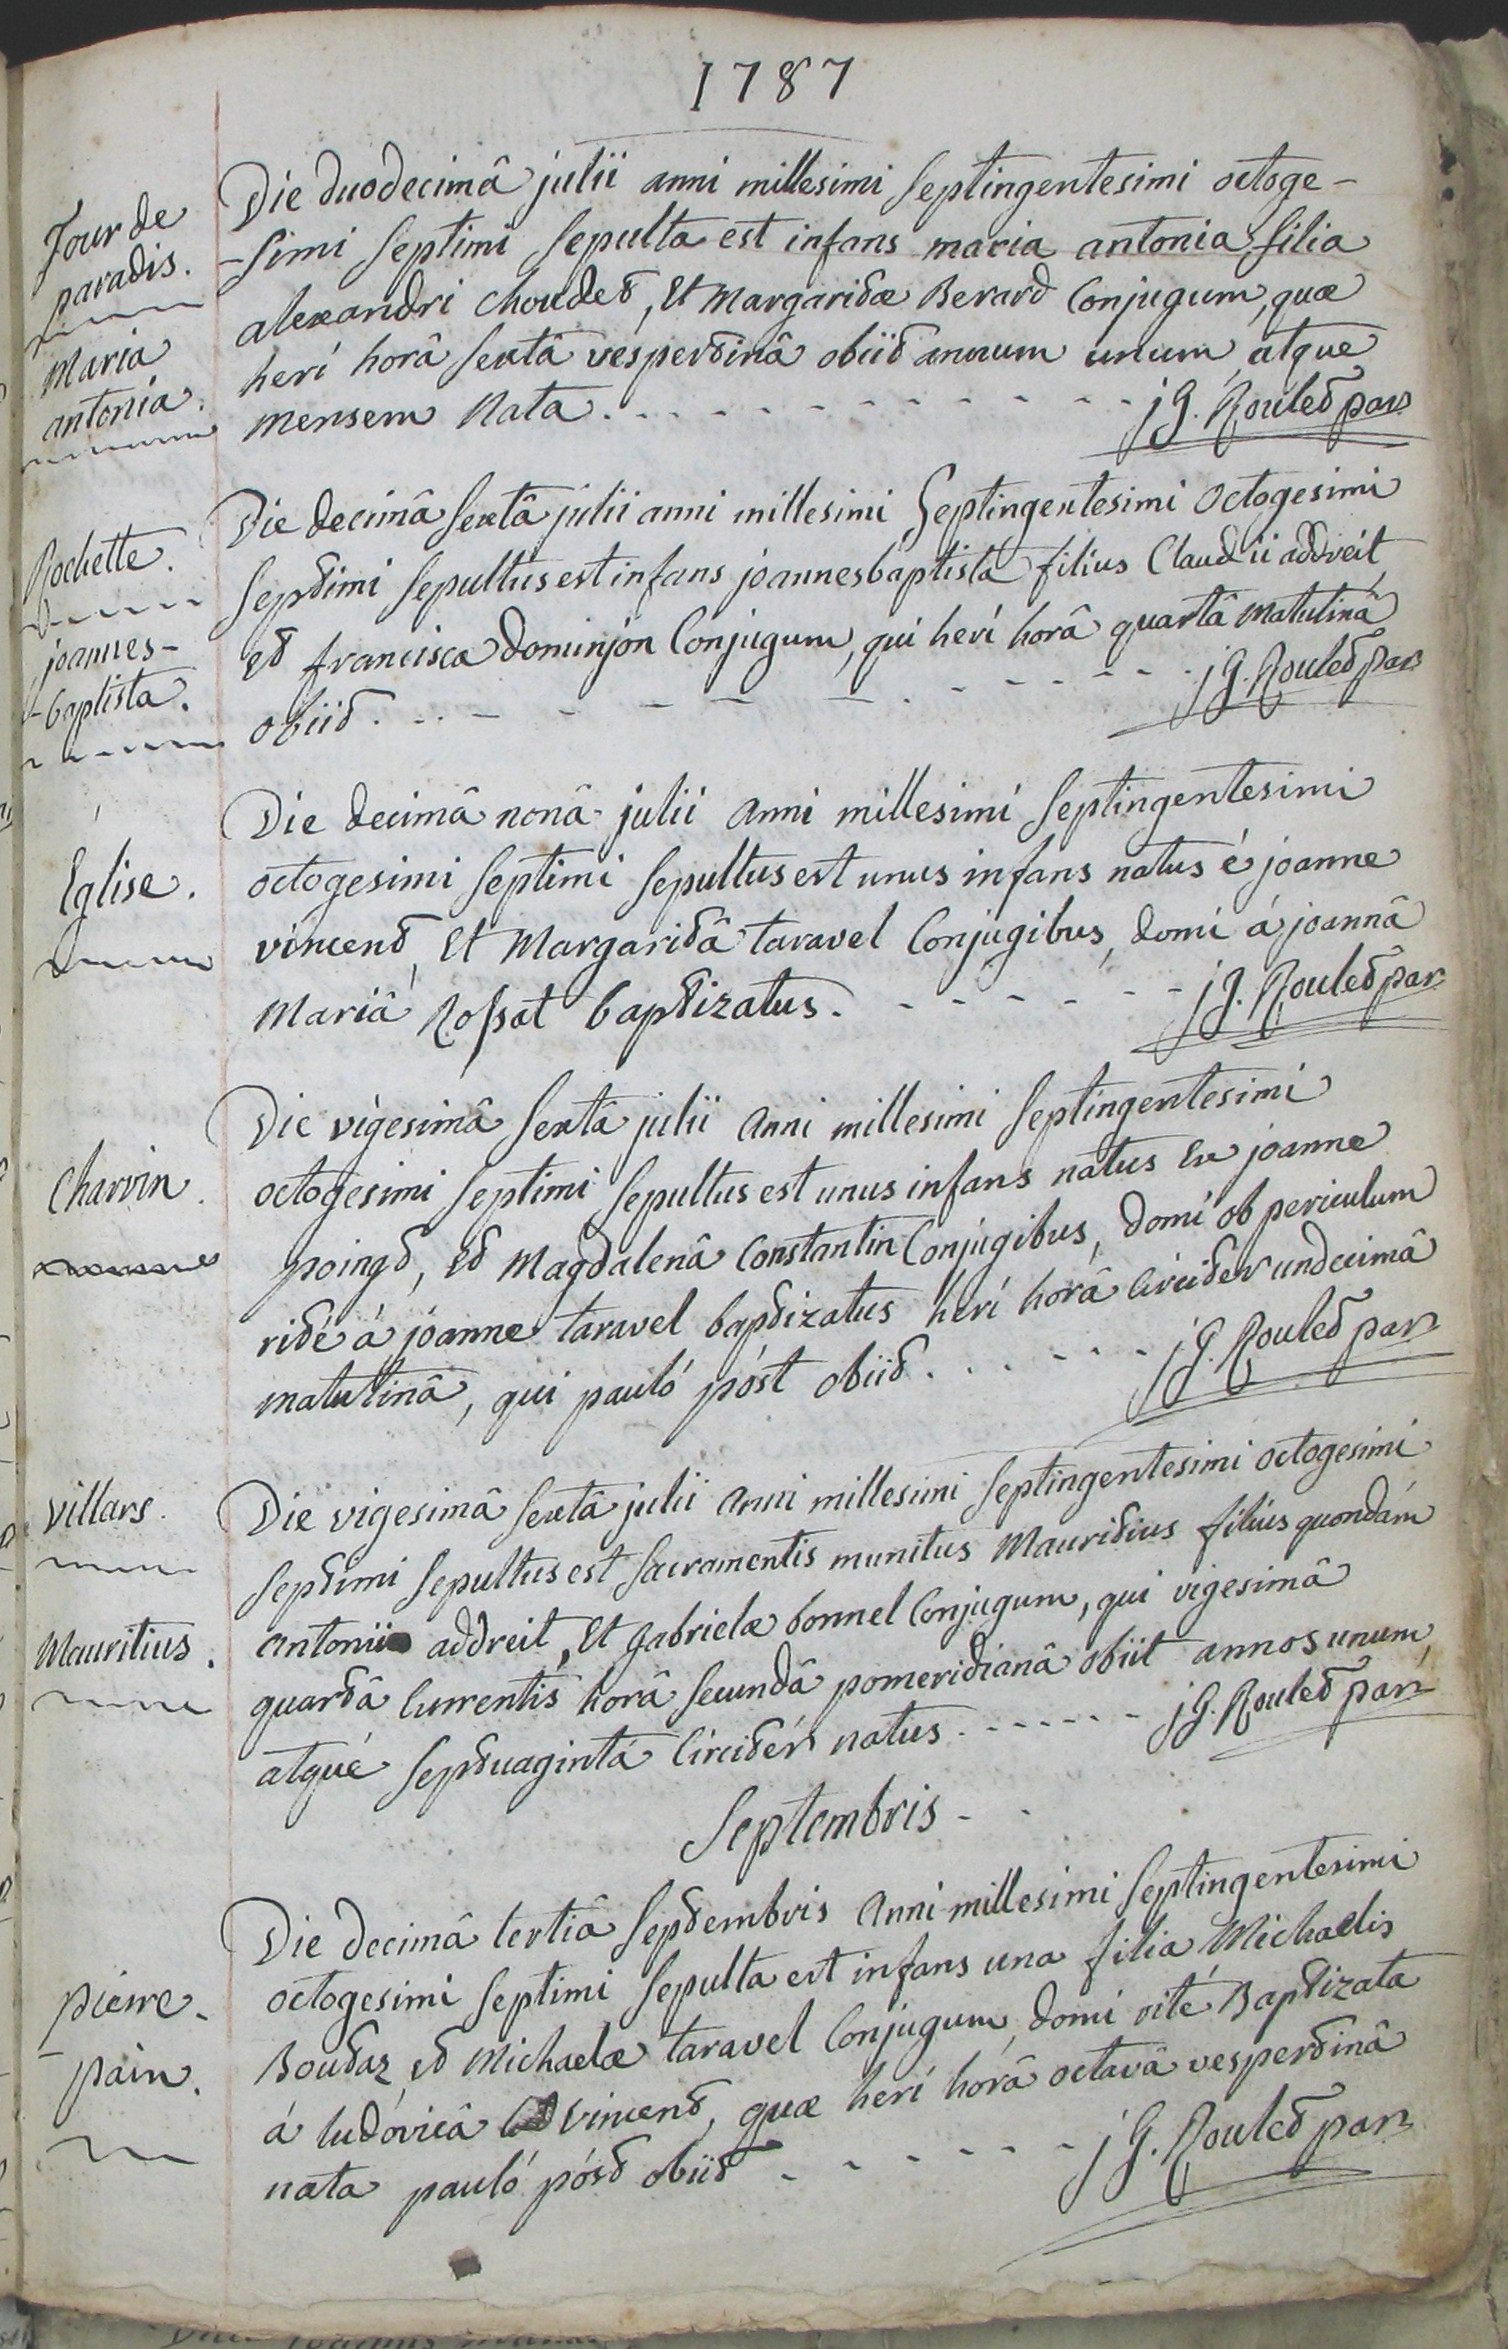 1787
Tour de
paradis.
Maria
antonia.
Die duodecimâ julii anni millesimi septingentesimi octoge-
-simi septimi sepulta est infans maria antonia, filia
alexandri choudet, Et Margaritæ Berard Conjugum, quæ
heri horâ sextâ vespertinâ obiit annum unum, atque
mensem Nata. jG. Roulet par
Rochette.
joannes-
-baptista.
Die decimâ sextâ julii anni millesimi Septingentesimi Octogesimi
septimi sepultus est infans joannesbaptista filius Claudii addreit
et francisca dominjon Conjugum, qui heri horâ quartâ Matutinâ
obiit. jG. Roulet par
Eglise.
Die decimâ nonâ julii anni millesimi septingentesimi
octogesimi septimi sepultus est unus infans natus é joanne
vincent, Et Margaritâ taravel Conjugibus, domi á joannâ
Mariâ Rossat baptizatus. jG. Roulet par
Charvin.
Die vigesimâ sextâ julii anni millesimi septingentesimi
octogesimi septimi sepultus est unus infans natus Ex joanne
poingt, et Magdalenâ Constantin Conjugibus, domi ob periculum
rité á joanne taravel baptizatus heri horâ circiter undecimâ
matutinâ, qui pauló póst obiit. jG. Roulet par
villars.
Mauritius.
Die vigesimâ sextâ julii anni millesimi septingentesimi octogesimi
septimi sepultus est sacramentis munitus Mauritius filius quondám
antonii addreit, Et gabrielæ bonnel Conjugum, qui vigesimâ
quartâ Currentis horâ secundâ pomeridianâ obiit annos unum,
atqué septuagintá Circitér natus. jG. Roulet par
Septembris
pierre-
pain.
Die decimâ tertiâ septembris anni millesimi septingentesimi
octogesimi septimi sepulta est infans una filia Michaelis
Boutaz et Michaelæ taravel Conjugum, domi rité Baptizata
á ludóvicâ vincent, quæ heri horâ octavâ vespertinâ
nata pauló póst obiit jG. Roulet par